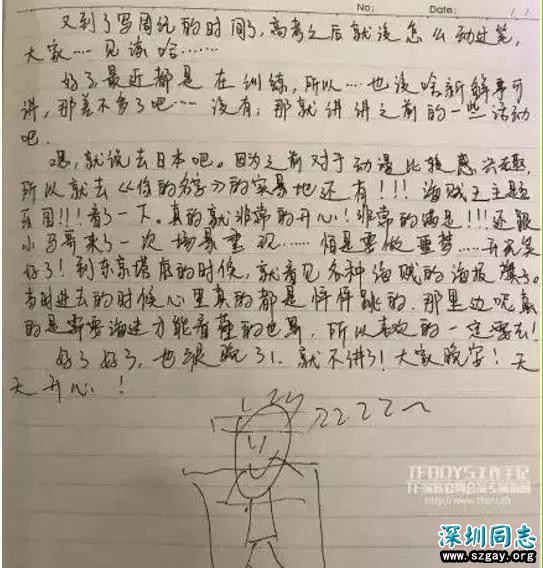 No:
Date:
又到了写周记的时间了,高考之后就没怎么动过笔,
大家……见谅哈……
好了,最近都是在训练,所以…也没啥新鲜事可
讲,那差不多了吧……没有,那就讲讲之前的一些活动
吧.
嗯,就说去日本吧。因为之前对于动漫比较感兴趣,
所以就去《你的名字》的实景地还有!!!海贼王主题
乐园!!!看了一下。真的就非常的开心!非常的满足!!!还跟
小马哥来了一次场景重现……怕是要做噩梦……开玩笑
好了!到东京塔底的时候,就看见各种海贼的海报旗子。
当时进去的时候心里真的都是怦怦跳的,那里边呢真
的是需要海迷才能看懂的世界,所以喜欢的一定要去!
好了好了,也很晚了!就不讲了!大家晚安!天
天开心!
ZZZZ~
TFBOYS工作手记
深圳同志
www.szgay.org